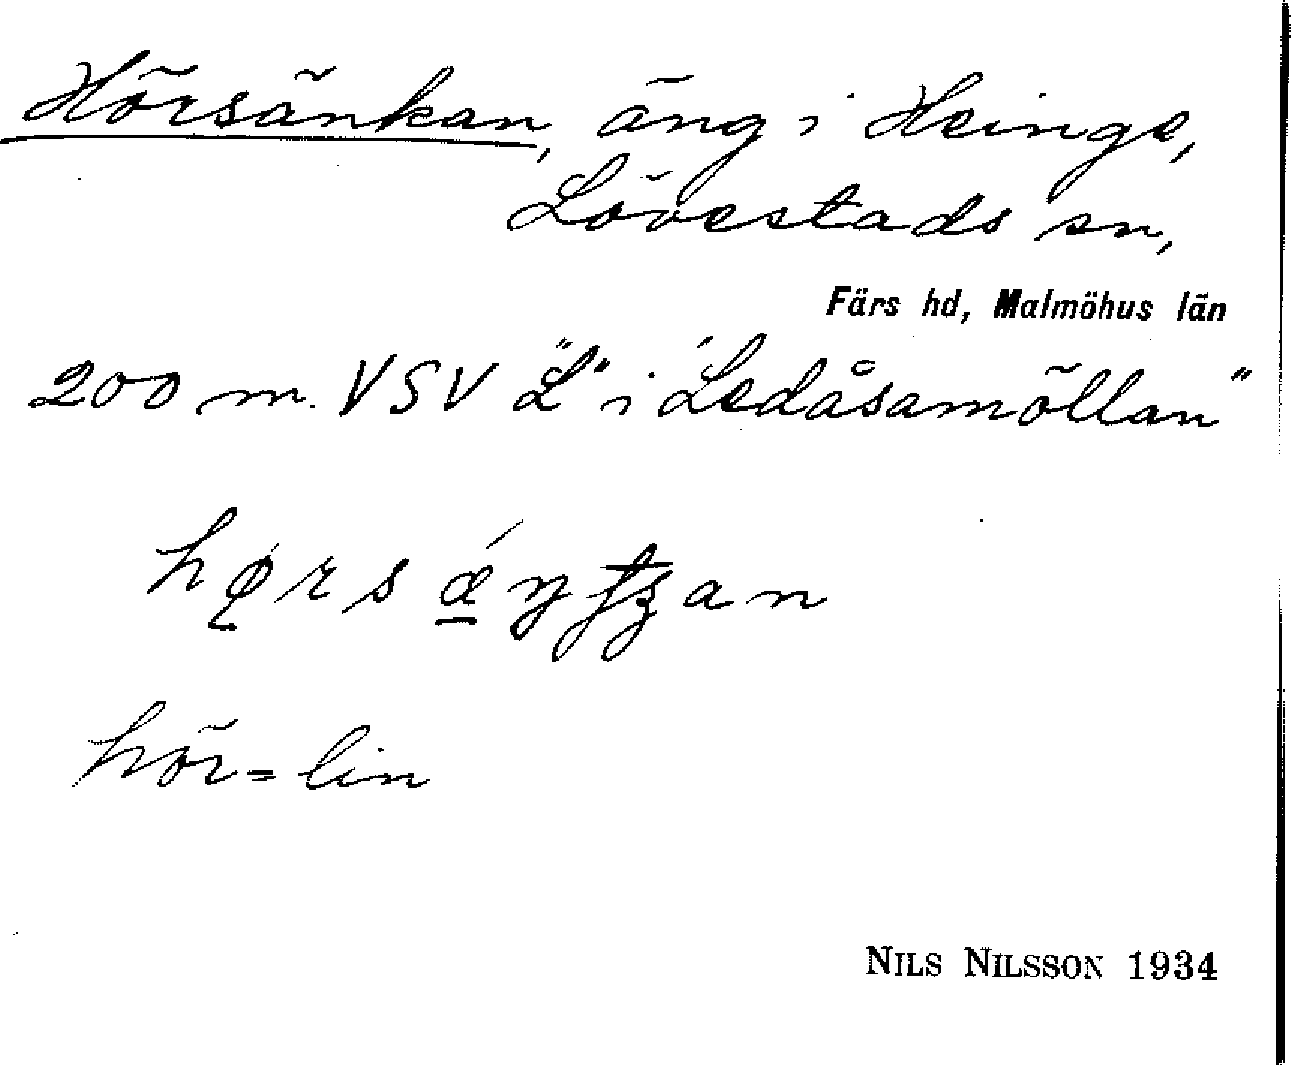 Hörsänkan, äng i Heinge,
Lövestads sn,
Färs hd, Malmöhus län
200 m. VSV "L" i "Ledåsamöllan"
hör = lin
NILS NILSSON 1934